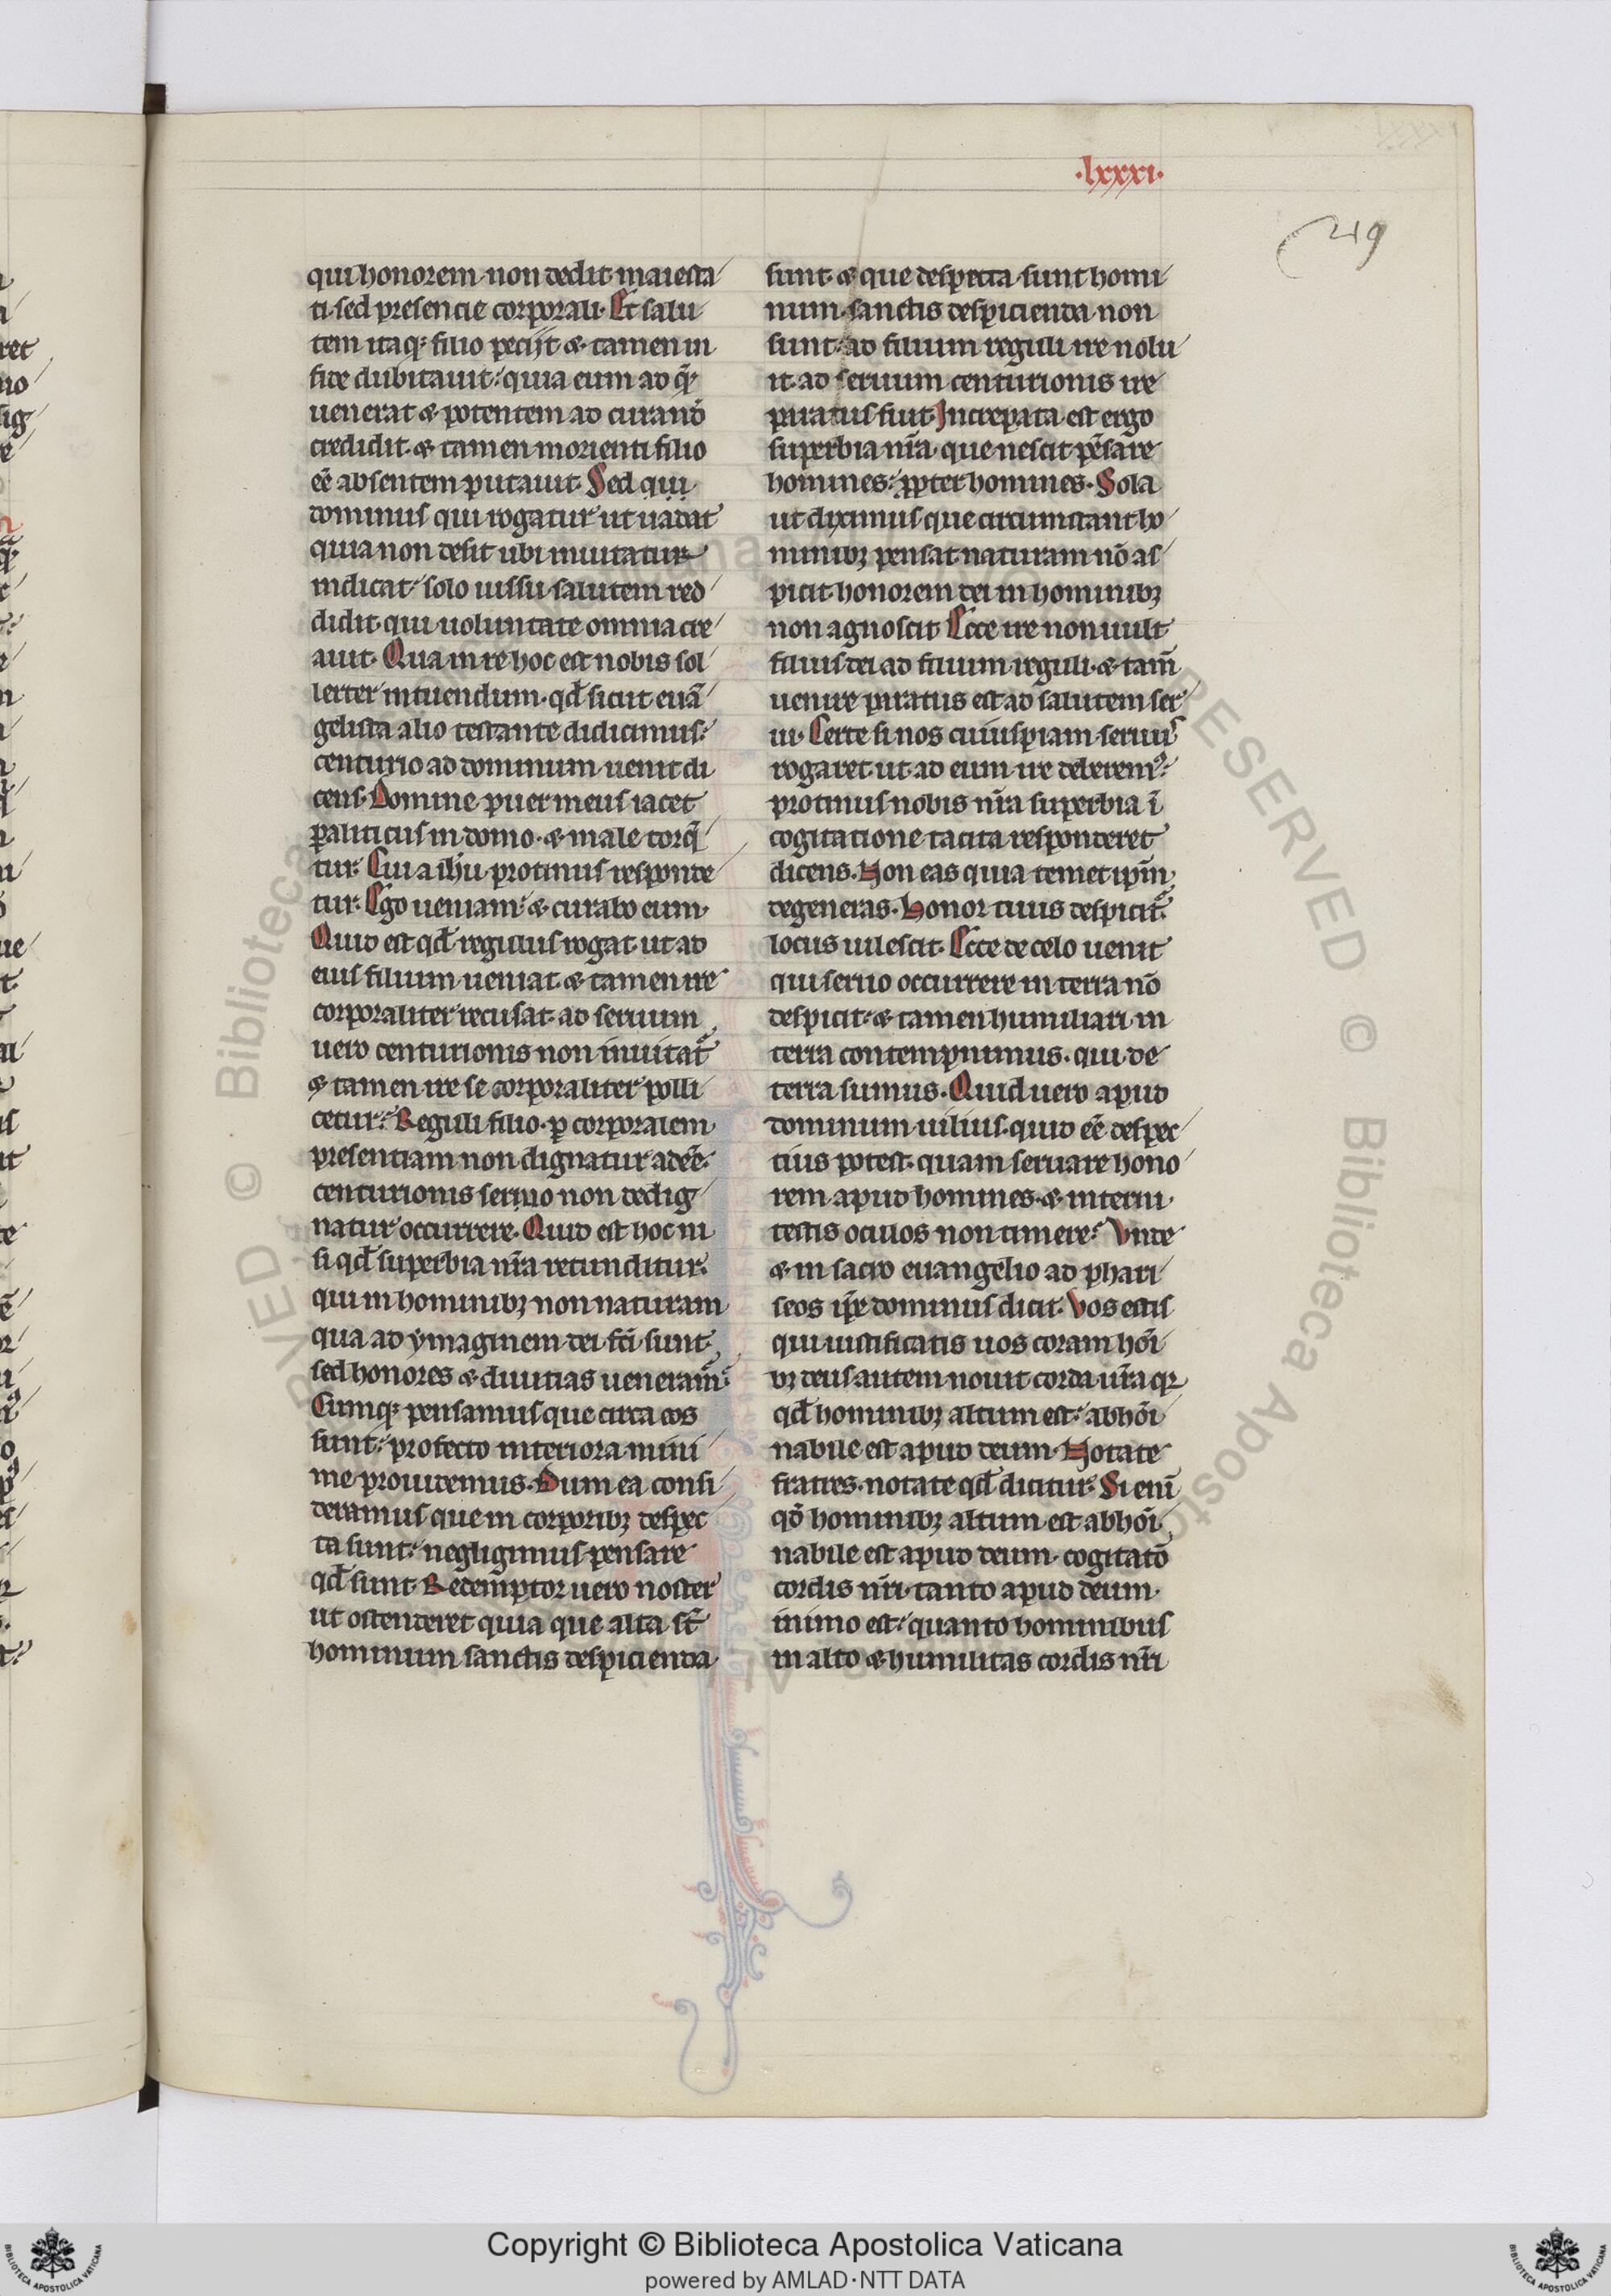 ·lxxxi·
219
qui honorem non dedit maiesta
ti sed presencie corporali. Et salu
tem itaq; filio peciit & tamen in
fide dubitauit: quia eum ad q̄
uenerat & potentem ad curand̄
credidit. & tamen morienti filio
eē absentem putauit. Sed qui
dominus qui rogatur ut uadat
quia non desit ubi inuitatur
indicat. solo iussu salutem red
didit. qui uoluntate omnia cre
auit. Qua in re hoc est nobis sol
lerter intuendum. qd̄ sicut euā
gelista alio testante didicimus:
centurio ad dominum uenit di
cens. Domine puer meus iacet
paliticus in domo. & male torq̄
tur. Cui a ihu protinus responde
tur. Ego ueniam. & curabo eum.
Quid est qd̄ regulus rogat ut ad
eius filium ueniat. & tamen ire
corporaliter recusat. ad seruum
uero centurionis non inuitat᷑
& tamen ire se corporaliter polli
cetur: Reguli filio ꝑ corporalem
presentiam non dignatur adeē.
centurionis seruo non dedig
natur occurrere. Quid est hoc ni
si qd̄ superbia nr̄a retunditur.
qui in hominibꝫ non naturam
qua ad ymaginem dei fc̄i sunt
sed honores & diuitias ueneram᷑:
Cumq; pensamus que circa eos
sunt: profecto interiora mini
me prouidemus. Dum ea consi
deramus que in corporibꝫ despec
ta sunt: negligimus pensare
qd̄ sunt. Redemptor uero noster
ut ostenderet quia que alta st̄
hominum sanctis despicienda
sunt. & que despecta sunt homi
num sanctis despicienda non
sunt. ad filium reguli ire nolu
it. ad seruum centurionis ire
paratus fuit. Increpata est ergo
superbia nr̄a. que nescit pēsare
homines: ꝓpter homines. Sola
ut diximus que circumstant ho
minibꝫ pensat naturam nō as
picit honorem dei in hominibꝫ
non agnoscit. Ecce ire non uult
filius dei ad filium reguli. & tam̄
uenire paratus est ad salutem ser
ui. Certe si nos cuiuspiam seruus
rogaret ut ad eum ire deberemꝰ:
protinus nobis nr̄a superbia ī
cogitatione tacita responderet
dicens. Non eas quia temet ipm̄
degeneras. Honor tuus despicit᷑
locus uilescit. Ecce de celo uenit
qui seruo occurrere in terra nō
despicit. & tamen humiliari in
terra contempnimus. qui de
terra sumus. Quid uero apud
dominum uilius. quid eē despec
tius potest. quam seruare hono
rem apud homines. & interni
testis oculos non timere: Vnde
& in sacro euangelio ad phari
seos ip̄e dominus dicit. Vos estis
qui iustificatis uos coram hōi
bꝫ deus autem nouit corda ur̄a qꝛ
qd̄ hominibꝫ altum est: abhōi
nabile est apud deum. Notate
fratres. notate qd̄ dicitur. Si enī
qd̄ hominibꝫ altum est abhōi
nabile est apud deum. cogitatō
cordis nr̄i. tanto apud deum
inimo est: quanto hominibus
in alto & humilitas cordis nr̄i
Copyright © Biblioteca Apostolica Vaticana
powered by AMLAD·NTT DATA